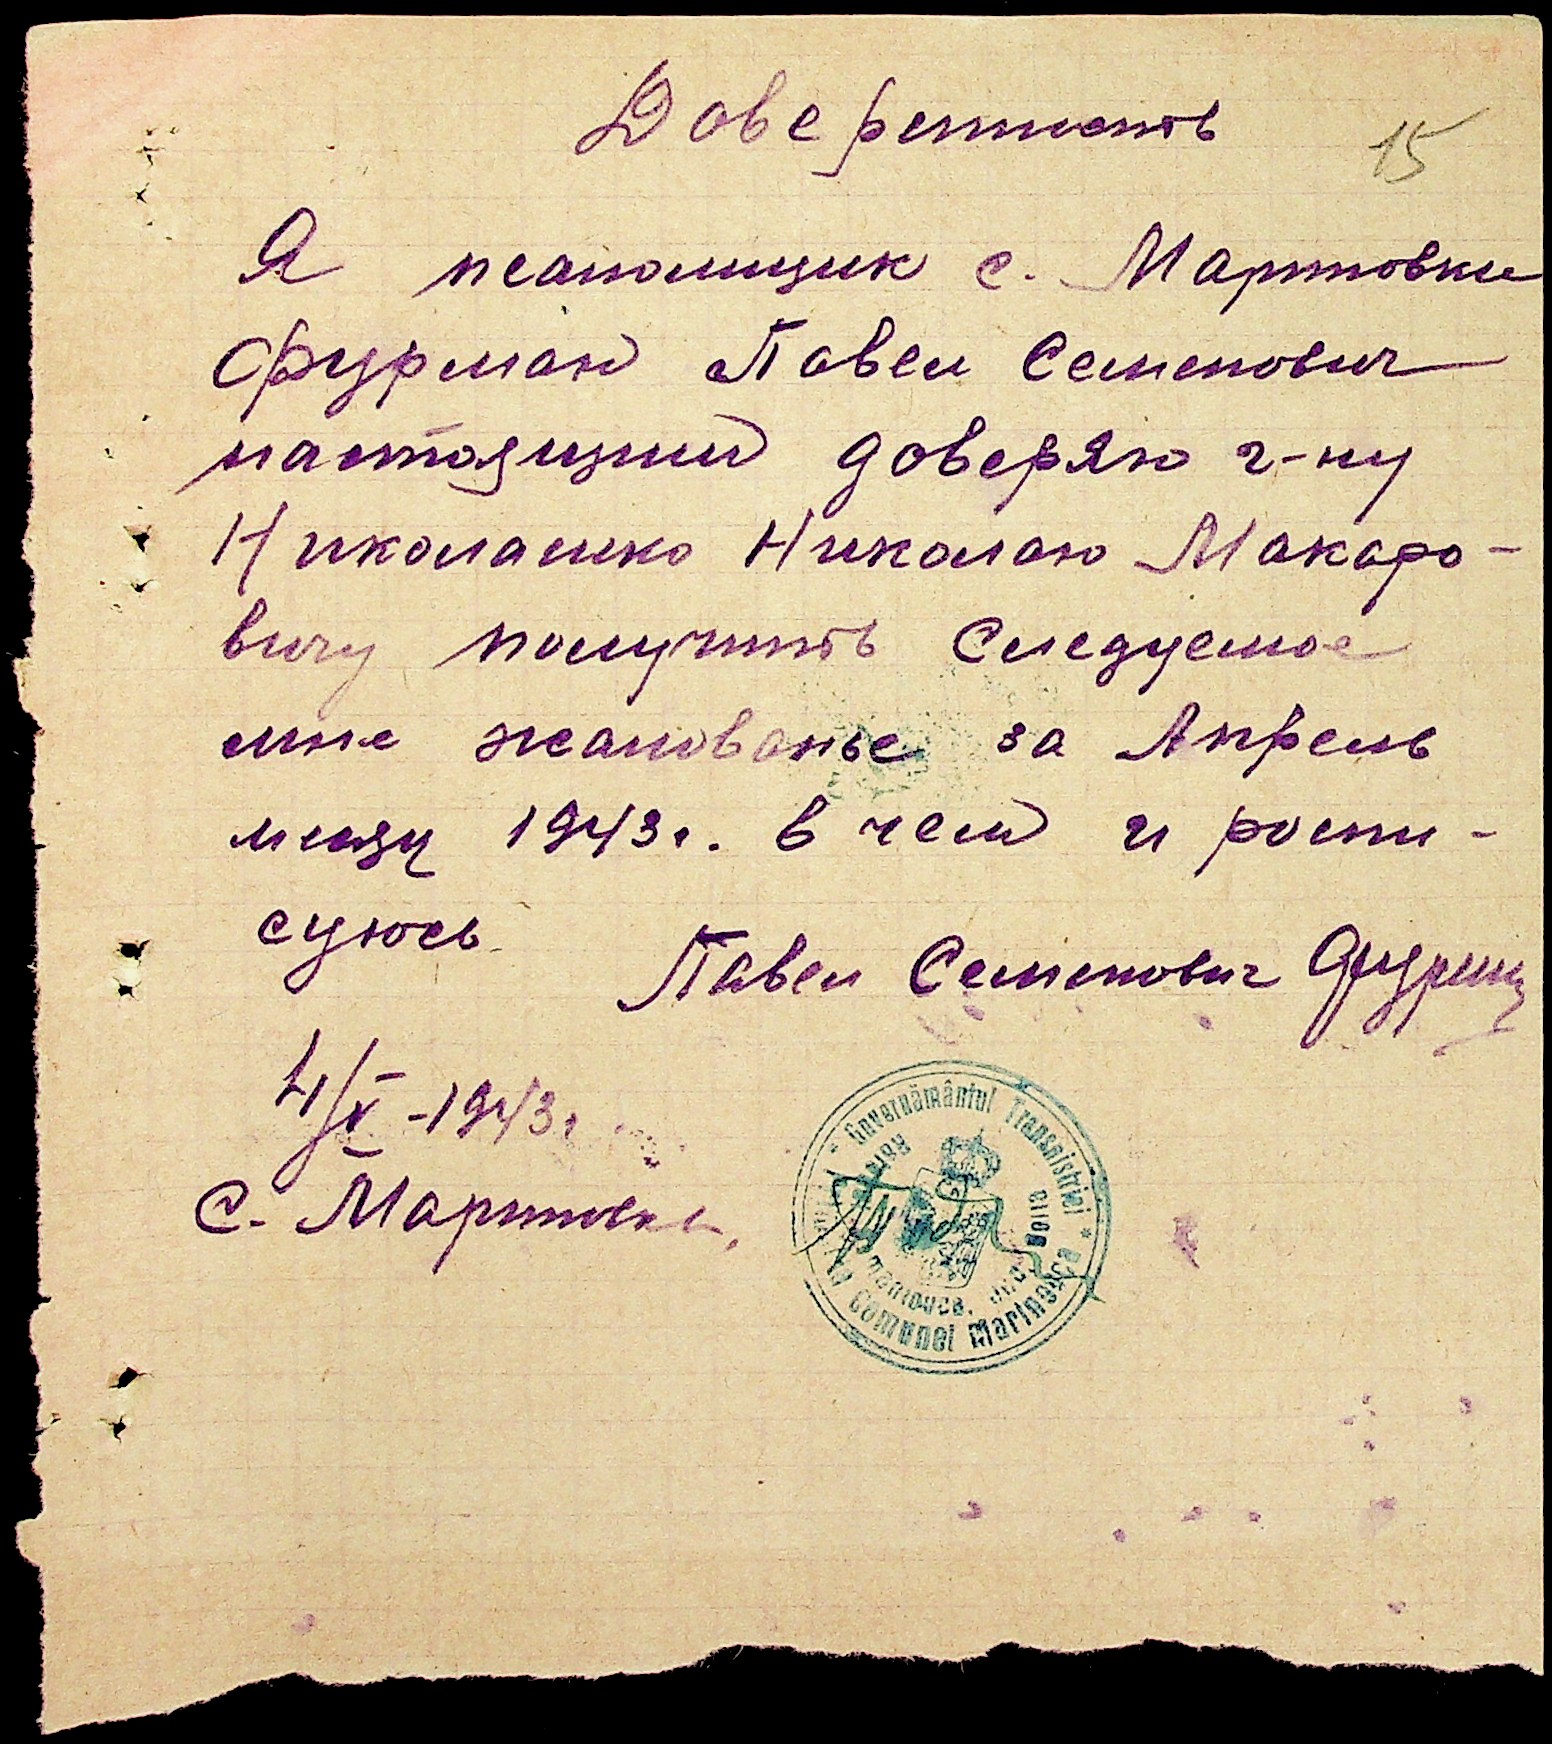 Доверенность
15
Я псаломщик с. Мартовки
Фурман Павел Семенович
настоящим доверяю г-ну
Николаенко Николаю Макаро-
вичу получить следуемое
мне жалованье за Апрель
месяц 1943г. в чем и роспи-
суюсь
Павел Семенович Фурман
4/V-1943г.
с. Мартовка
Guvernământul Transnistriei
Comunei Marinovca